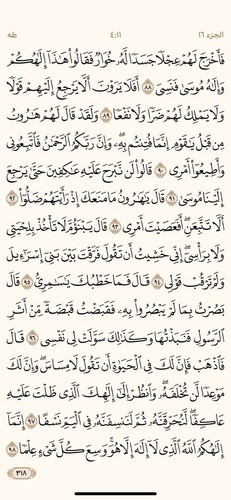 الجزء ١٦ ٤:١١ طه
فَأَخْرَجَ لَهُمْ عِجْلًا جَسَدًا لَّهُۥ خُوَارٌ فَقَالُوا۟ هَـٰذَآ إِلَـٰهُكُمْ
وَإِلَـٰهُ مُوسَىٰ فَنَسِىَ ٨٨ أَفَلَا يَرَوْنَ أَلَّا يَرْجِعُ إِلَيْهِمْ قَوْلًا
وَلَا يَمْلِكُ لَهُمْ ضَرًّا وَلَا نَفْعًا ٨٩ وَلَقَدْ قَالَ لَهُمْ هَـٰرُونُ
مِن قَبْلُ يَـٰقَوْمِ إِنَّمَا فُتِنتُم بِهِۦ وَإِنَّ رَبَّكُمُ ٱلرَّحْمَـٰنُ فَٱتَّبِعُونِى
وَأَطِيعُوٓا۟ أَمْرِى ٩٠ قَالُوا۟ لَن نَّبْرَحَ عَلَيْهِ عَـٰكِفِينَ حَتَّىٰ يَرْجِعَ
إِلَيْنَا مُوسَىٰ ٩١ قَالَ يَـٰهَـٰرُونُ مَا مَنَعَكَ إِذْ رَأَيْتَهُمْ ضَلُّوٓا۟ ٩٢
أَلَّا تَتَّبِعَنِ أَفَعَصَيْتَ أَمْرِى ٩٣ قَالَ يَبْنَؤُمَّ لَا تَأْخُذْ بِلِحْيَتِى
وَلَا بِرَأْسِىٓ إِنِّى خَشِيتُ أَن تَقُولَ فَرَّقْتَ بَيْنَ بَنِىٓ إِسْرَٰٓءِيلَ
وَلَمْ تَرْقُبْ قَوْلِى ٩٤ قَالَ فَمَا خَطْبُكَ يَـٰسَـٰمِرِىُّ ٩٥ قَالَ
بَصُرْتُ بِمَا لَمْ يَبْصُرُوا۟ بِهِۦ فَقَبَضْتُ قَبْضَةً مِّنْ أَثَرِ
ٱلرَّسُولِ فَنَبَذْتُهَا وَكَذَٰلِكَ سَوَّلَتْ لِى نَفْسِى ٩٦ قَالَ
فَٱذْهَبْ فَإِنَّ لَكَ فِى ٱلْحَيَوٰةِ أَن تَقُولَ لَا مِسَاسَ وَإِنَّ لَكَ
مَوْعِدًا لَّن تُخْلَفَهُۥ وَٱنظُرْ إِلَىٰٓ إِلَـٰهِكَ ٱلَّذِى ظَلْتَ عَلَيْهِ
عَاكِفًا لَّنُحَرِّقَنَّهُۥ ثُمَّ لَنَنسِفَنَّهُۥ فِى ٱلْيَمِّ نَسْفًا ٩٧ إِنَّمَآ
إِلَـٰهُكُمُ ٱللَّهُ ٱلَّذِى لَآ إِلَـٰهَ إِلَّا هُوَ وَسِعَ كُلَّ شَىْءٍ عِلْمًا ٩٨
٣١٨